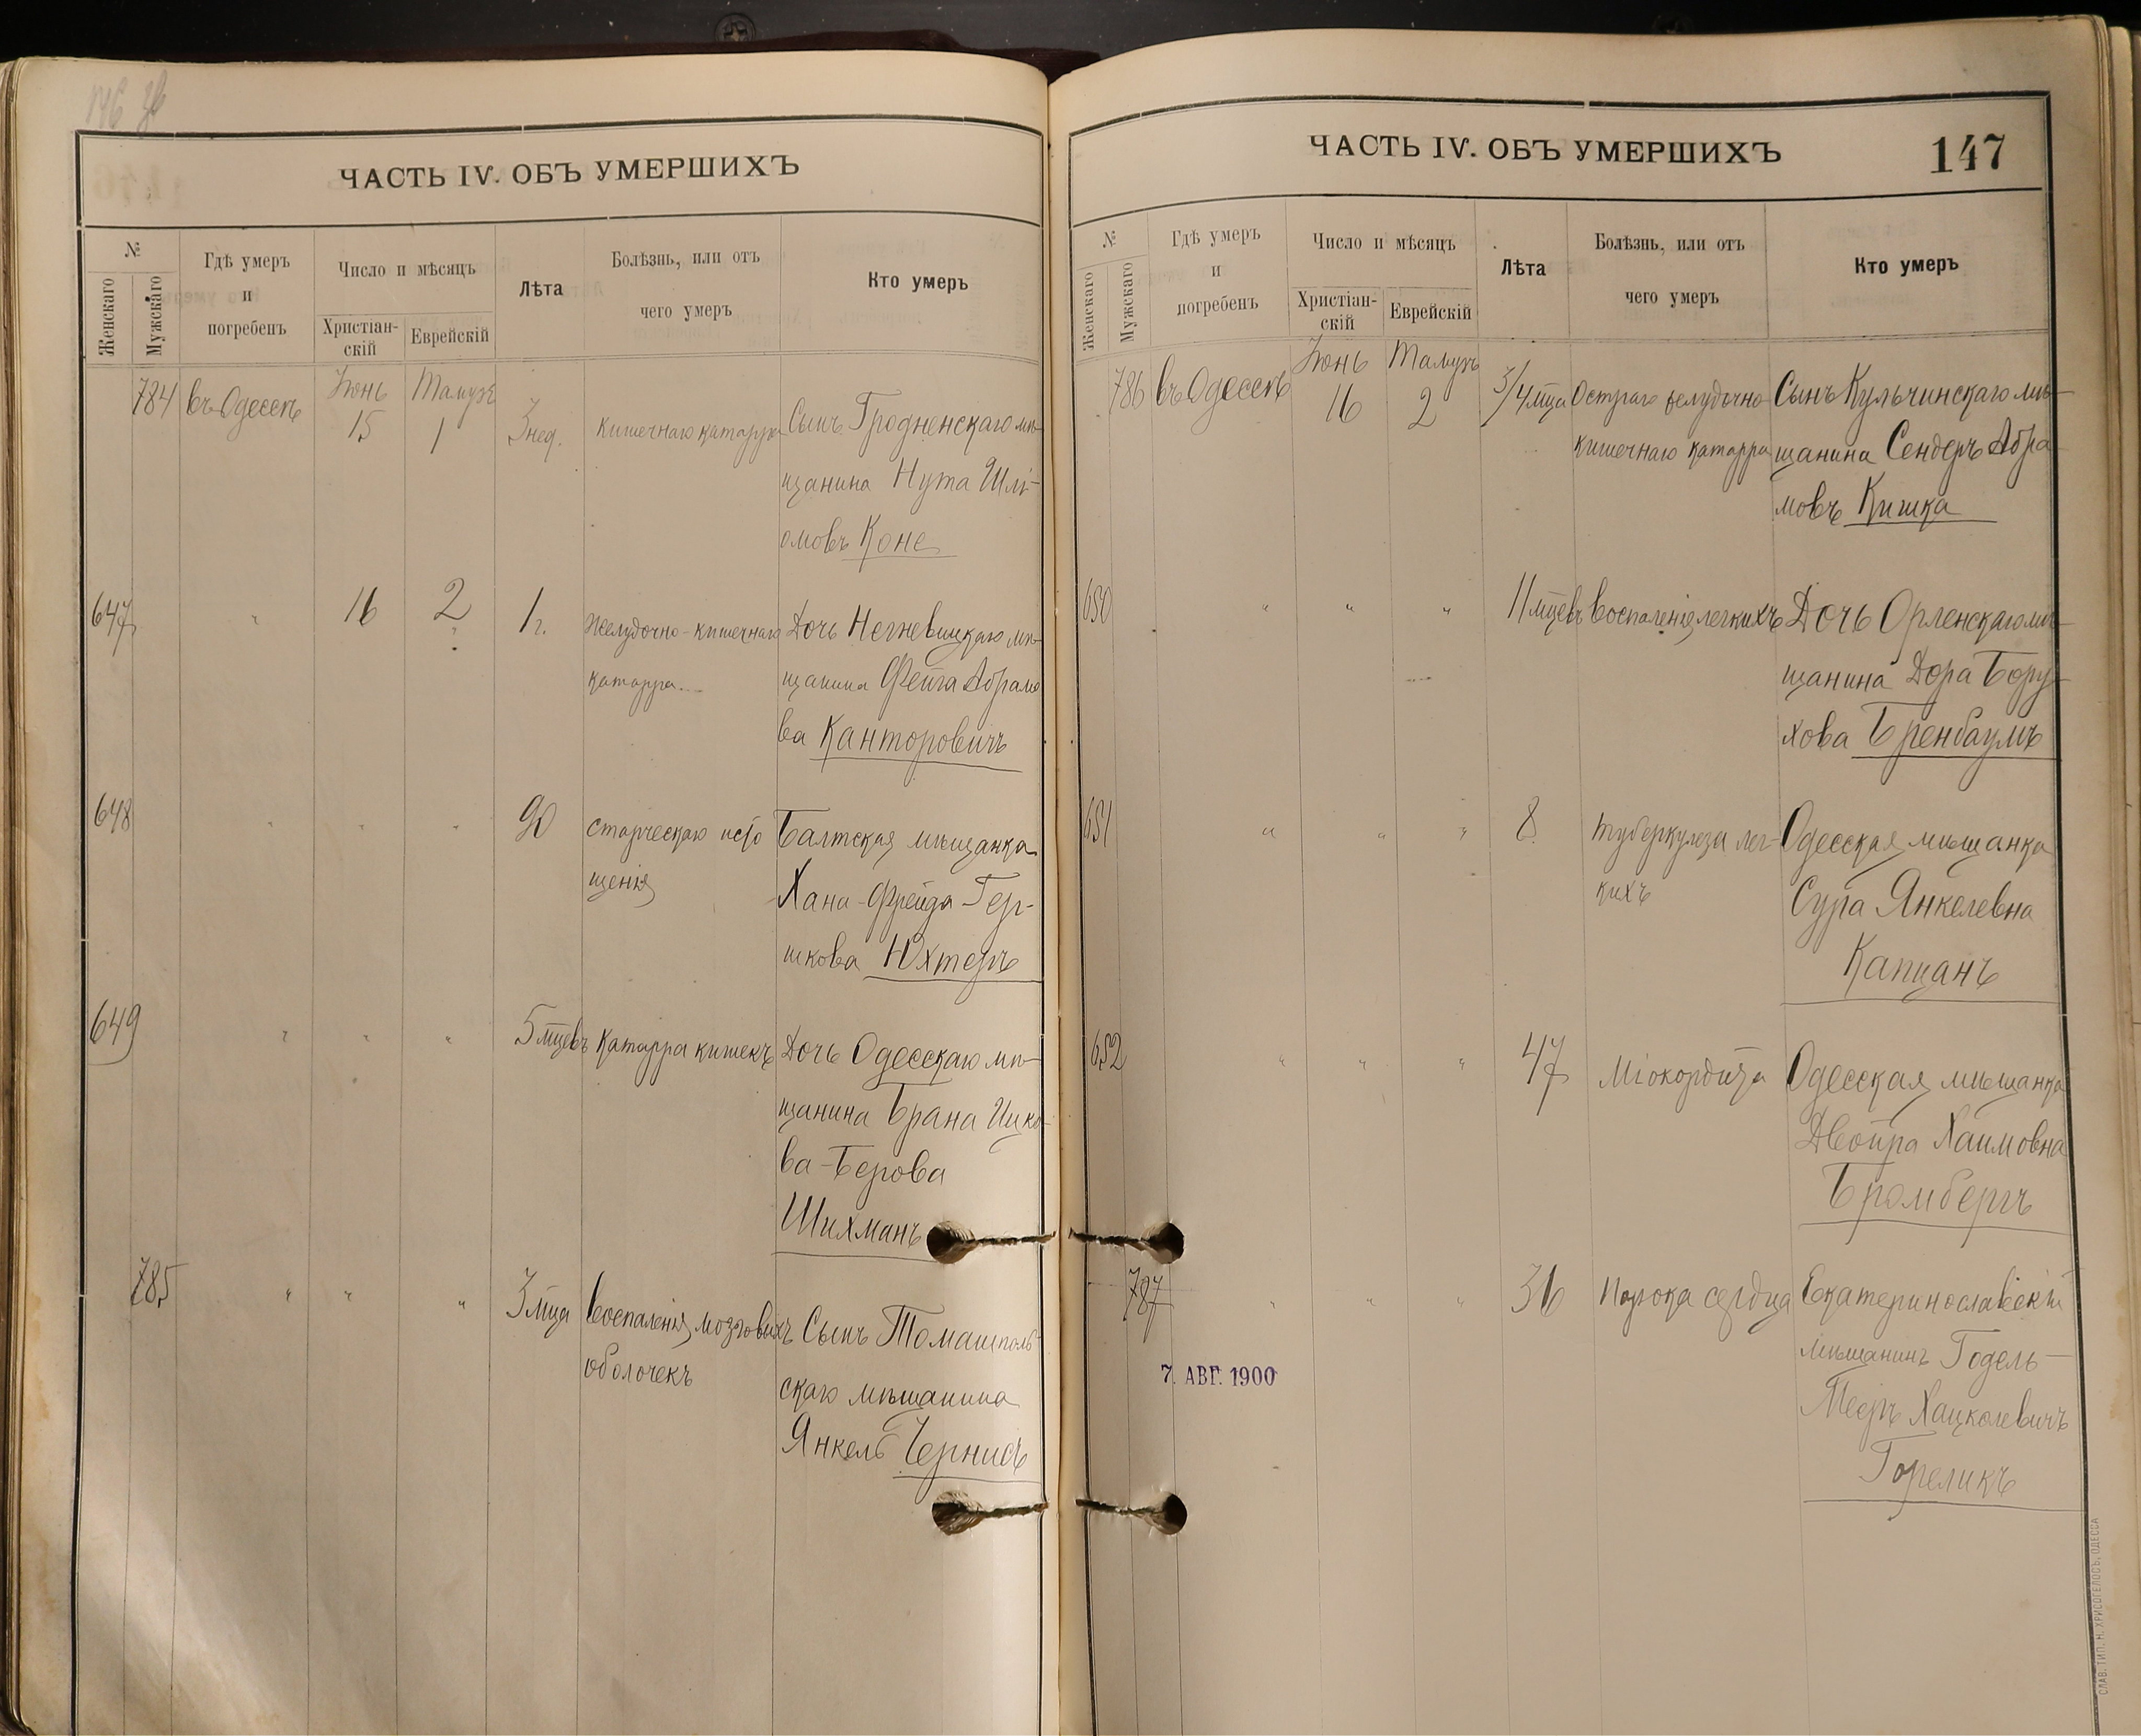 ЧАСТЬ IV. ОБЪ УМЕРШИХЪ
№
Женскаго
Мужскаго
Гдѣ умеръ
и
погребенъ
Число и мѣсяцъ
Христіан-
скій
Еврейскій
Лѣта
Болѣзнь, или отъ
чего умеръ
Кто умеръ
784
въ Одессѣ
Іюнь
15
Тамузъ
1
3 нед.
Кишечнаго катарра
Сынъ Гродненскаго мѣ-
щанина Нута Шлі-
омовъ Коне
647
"
16
2
1 г.
Желудочно-кишечнаго
катарра
Дочь Негневицкаго мѣ-
щанина Фейга Абрамо
ва Канторовичъ
648
"
"
"
90
старческаго исто
щенія
Балтская мѣщанка
Хана-Фрейда Гер-
шкова Юхтеръ
649
"
"
"
5 мцевъ
Катарра кишекъ
Дочь Одесскаго мѣ-
щанина Брана Ицко-
ва-Берова
Шихманъ
785
"
"
"
3 мца
Воспаленія мозговихъ
оболочекъ
Сынъ Томашполь-
скаго мѣщанина
Янкель
ЧАСТЬ IV. ОБЪ УМЕРШИХЪ
147
№
Женскаго
Мужскаго
Гдѣ умеръ
и
погребенъ
Число и мѣсяцъ
Христіан-
скій
Еврейскій
Лѣта
Болѣзнь, или отъ
чего умеръ
Кто умеръ
786
въ Одессѣ
Іюнь
16
Тамузъ
2
3/4 мца
Остраго желудочно
кишечнаго катарра
Сынъ Кульчинскаго мѣ-
щанина Сендеръ Абра
мовъ Кишка
650
"
"
"
11 мцевъ
Воспаленіе легкихъ
Дочь Орленскаго мѣ-
щанина Дора Бору-
хова Бренбаумъ
651
"
"
"
8
туберкулеза лег-
кихъ
Одесская мѣщанка
Сура Янкелевна
Капцанъ
652
"
"
"
47
Міокордита
Одесская мѣщанка
Двойра Хаимовна
Бромбергъ
787
"
"
"
36
Порока сердца
Екатеринославскій
мѣщанинъ Годель-
Мееръ Хацкелевичъ
Гореликъ
7. АВГ. 1900
СЛАВ. ТИП. Н. ХРИСОГЕЛОСЪ, ОДЕССА